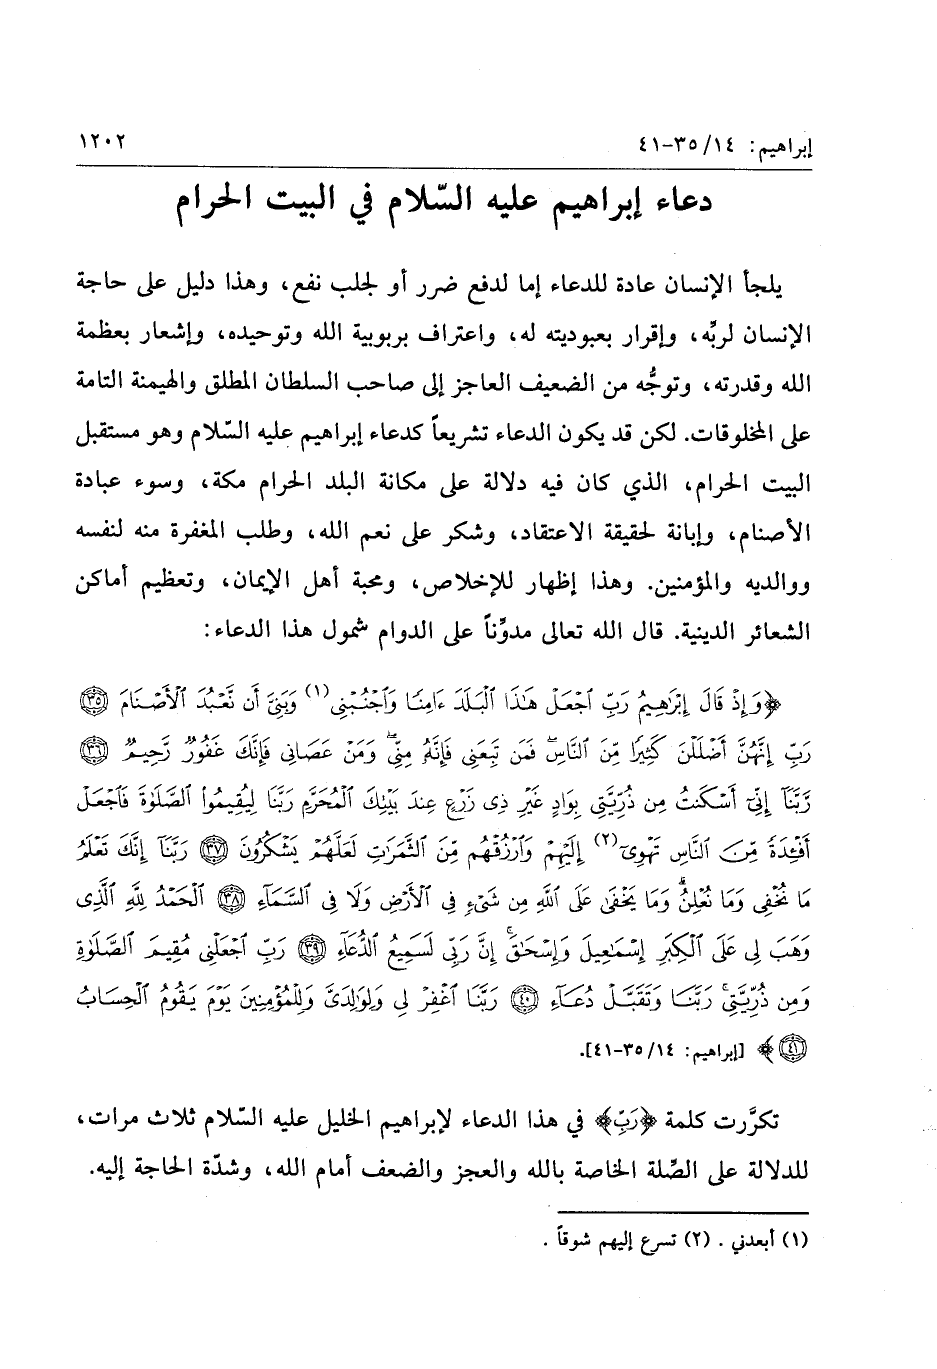 إبراهيم: ١٤/ ٣٥-٤١ ١٢٠٢
دعاء إبراهيم عليه السّلام في البيت الحرام
يلجأ الإنسان عادة للدعاء إما لدفع ضرر أو لجلب نفع، وهذا دليل على حاجة
الإنسان لربِّه، وإقرار بعبوديته له، واعتراف بربوبية الله وتوحيده، وإشعار بعظمة
الله وقدرته، وتوجُّه من الضعيف العاجز إلى صاحب السلطان المطلق والهيمنة التامة
على المخلوقات. لكن قد يكون الدعاء تشريعاً كدعاء إبراهيم عليه السّلام وهو مستقبل
البيت الحرام، الذي كان فيه دلالة على مكانة البلد الحرام مكة، وسوء عبادة
الأصنام، وإبانة لحقيقة الاعتقاد، وشكر على نعم الله، وطلب المغفرة منه لنفسه
ووالديه والمؤمنين. وهذا إظهار للإخلاص، ومحبة أهل الإيمان، وتعظيم أماكن
الشعائر الدينية. قال الله تعالى مدوِّناً على الدوام شمول هذا الدعاء:
﴿وَإِذْ قَالَ إِبْرَٰهِيمُ رَبِّ ٱجْعَلْ هَٰذَا ٱلْبَلَدَ ءَامِنًا وَٱجْنُبْنِى (١) وَبَنِىَّ أَن نَّعْبُدَ ٱلْأَصْنَامَ ٣٥
رَبِّ إِنَّهُنَّ أَضْلَلْنَ كَثِيرًا مِّنَ ٱلنَّاسِۖ فَمَن تَبِعَنِى فَإِنَّهُۥ مِنِّىۖ وَمَنْ عَصَانِى فَإِنَّكَ غَفُورٌ رَّحِيمٌ ٣٦
رَّبَّنَآ إِنِّىٓ أَسْكَنتُ مِن ذُرِّيَّتِى بِوَادٍ غَيْرِ ذِى زَرْعٍ عِندَ بَيْتِكَ ٱلْمُحَرَّمِ رَبَّنَا لِيُقِيمُوا۟ ٱلصَّلَوٰةَ فَٱجْعَلْ
أَفْـِٔدَةً مِّنَ ٱلنَّاسِ تَهْوِىٓ (٢) إِلَيْهِمْ وَٱرْزُقْهُم مِّنَ ٱلثَّمَرَٰتِ لَعَلَّهُمْ يَشْكُرُونَ ٣٧ رَبَّنَآ إِنَّكَ تَعْلَمُ
مَا نُخْفِى وَمَا نُعْلِنُۗ وَمَا يَخْفَىٰ عَلَى ٱللَّهِ مِن شَىْءٍ فِى ٱلْأَرْضِ وَلَا فِى ٱلسَّمَآءِ ٣٨ ٱلْحَمْدُ لِلَّهِ ٱلَّذِى
وَهَبَ لِى عَلَى ٱلْكِبَرِ إِسْمَٰعِيلَ وَإِسْحَٰقَۚ إِنَّ رَبِّى لَسَمِيعُ ٱلدُّعَآءِ ٣٩ رَبِّ ٱجْعَلْنِى مُقِيمَ ٱلصَّلَوٰةِ
وَمِن ذُرِّيَّتِىۚ رَبَّنَا وَتَقَبَّلْ دُعَآءِ ٤٠ رَبَّنَا ٱغْفِرْ لِى وَلِوَٰلِدَىَّ وَلِلْمُؤْمِنِينَ يَوْمَ يَقُومُ ٱلْحِسَابُ
٤١﴾ [إبراهيم: ١٤/ ٣٥-٤١].
تكرَّرت كلمة ﴿رَبِّ﴾ في هذا الدعاء لإبراهيم الخليل عليه السّلام ثلاث مرات،
للدلالة على الصِّلة الخاصة بالله والعجز والضعف أمام الله، وشدّة الحاجة إليه.
(١) أبعدني . (٢) تسرع إليهم شوقاً .